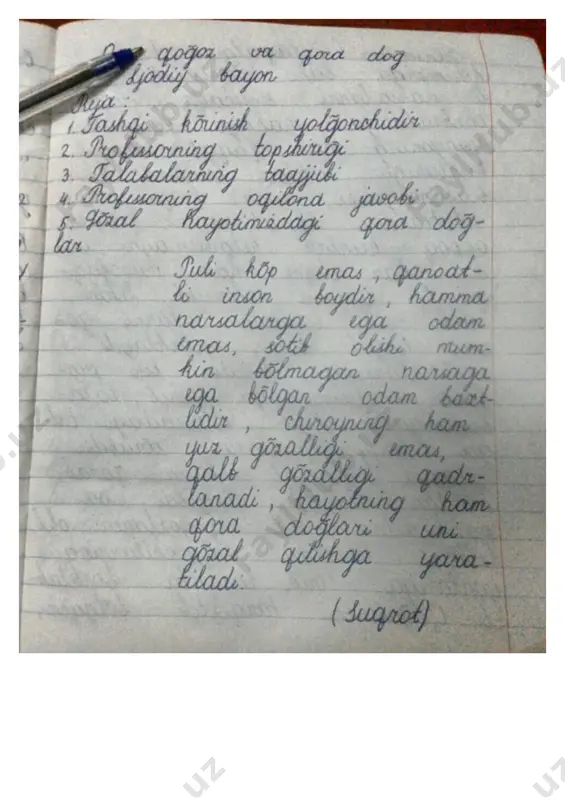 qoğoz va qora doğ
Ijodiy bayon
Reja:
1. Tashqi kõrinish yolğonchidir
2. Professorning topshiriği
3. Talabalarning taajjubi
4. Professorning oqilona javobi
5. Gõzal hayotimizdagi qora doğ-
lar.
Puli kõp emas, qanoat-
li inson boydir, hamma
narsalarga ega odam
emas, sotib olishi mum-
kin bõlmagan narsaga
ega bõlgan odam baxt-
lidir, chiroyning ham
yuz gõzalligi emas,
qalb gõzalligi qadr-
lanadi, hayotning ham
qora doğlari uni
gõzal qilishga yara-
tiladi.
(Suqrot)